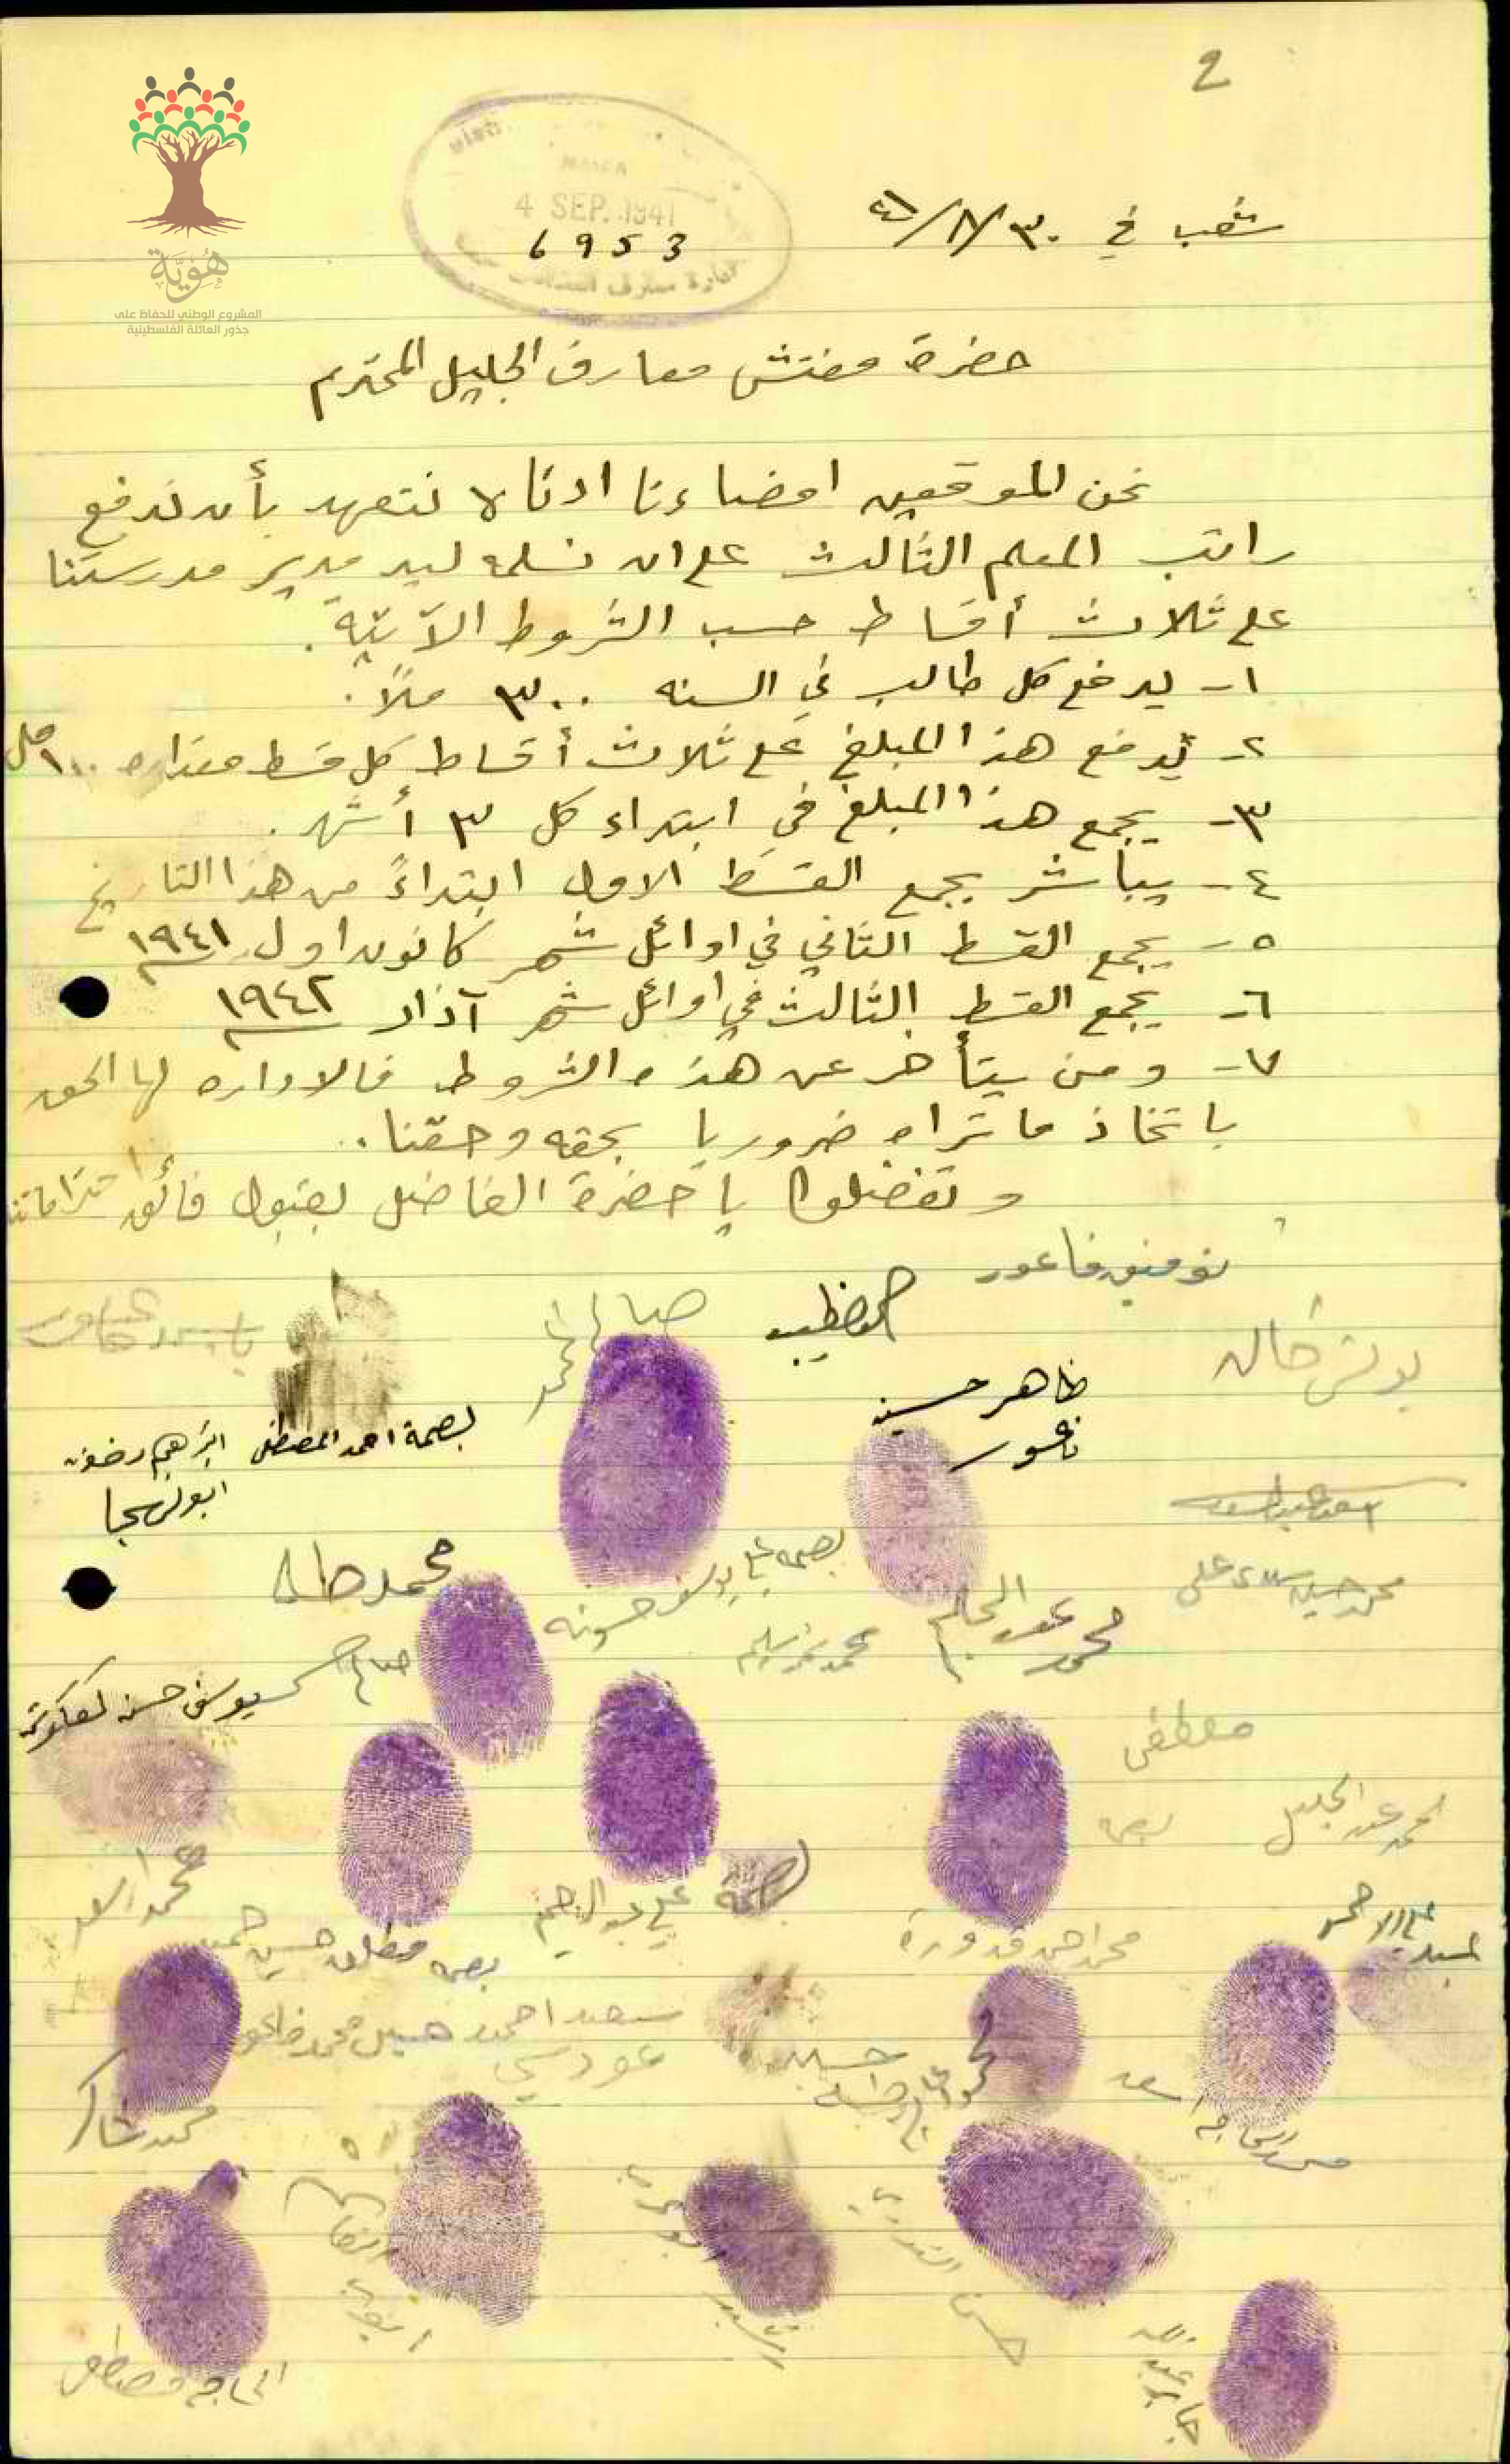 2
هُوِيَّة
المشروع الوطني للحفاظ على
جذور العائلة الفلسطينية
4 SEP. 1941
6953
شعب في ٣٠/٨/٤١
حضرة مفتش معارف الجليل المحترم
نحن الموقعين امضاءنا ادناه نتعهد بأن ندفع
راتب المعلم الثالث على ان نسلمه ليد مدير مدرستنا
على ثلاث أقساط حسب الشروط الآتية.
١- يدفع كل طالب في السنه ٣٠٠ ملاً.
٢- يدفع هذا المبلغ على ثلاث أقساط كل قسط مقداره ١٠٠ مل
٣- يجمع هذا المبلغ في ابتداء كل ٣ أشهر.
٤- يباشر بجمع القسط الاول ابتداءً من هذا التاريخ
٥- يجمع القسط الثاني في اوائل شهر كانون اول ١٩٤١
٦- يجمع القسط الثالث في اوائل شهر آذار ١٩٤٢
٧- ومن يتأخر عن هذه الشروط فالاداره لها الحق
باتخاذ ما تراه ضروريا بحقه وحقنا..
وتفضلوا يا حضرة الفاضل بقبول فائق احتراماتنا
توفيق فاعور
يونس خالد
ظاهر حسين
فاعور
بصمة احمد المصطفى
ابراهيم رضوان
ابو الهيجا
محمد طه
بصمه علي يوسف حسونه
محمد عبد الحليم
محمد حسين سعد علي
محمد نمر سليم
صالح
يوسف حسن
مصطفى
محمد عبد الجليل
بصمه
محمد اسعد
بصمة علي عبد الرحيم
محمد احمد قدورة
بصمه مطلق حسين حميد
سعيد احمد حسين محمد فاعور
محمد شاكر
محمد الحاج اسعد
حسين
الحاج مصطفى